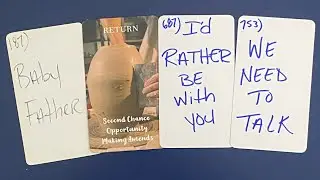 187)
Baby
Father
RETURN
Second Chance
Opportunity
Making Amends
687)
I'd
RATHER
BE
With
YOU
753)
WE
NEED
TO
TALK